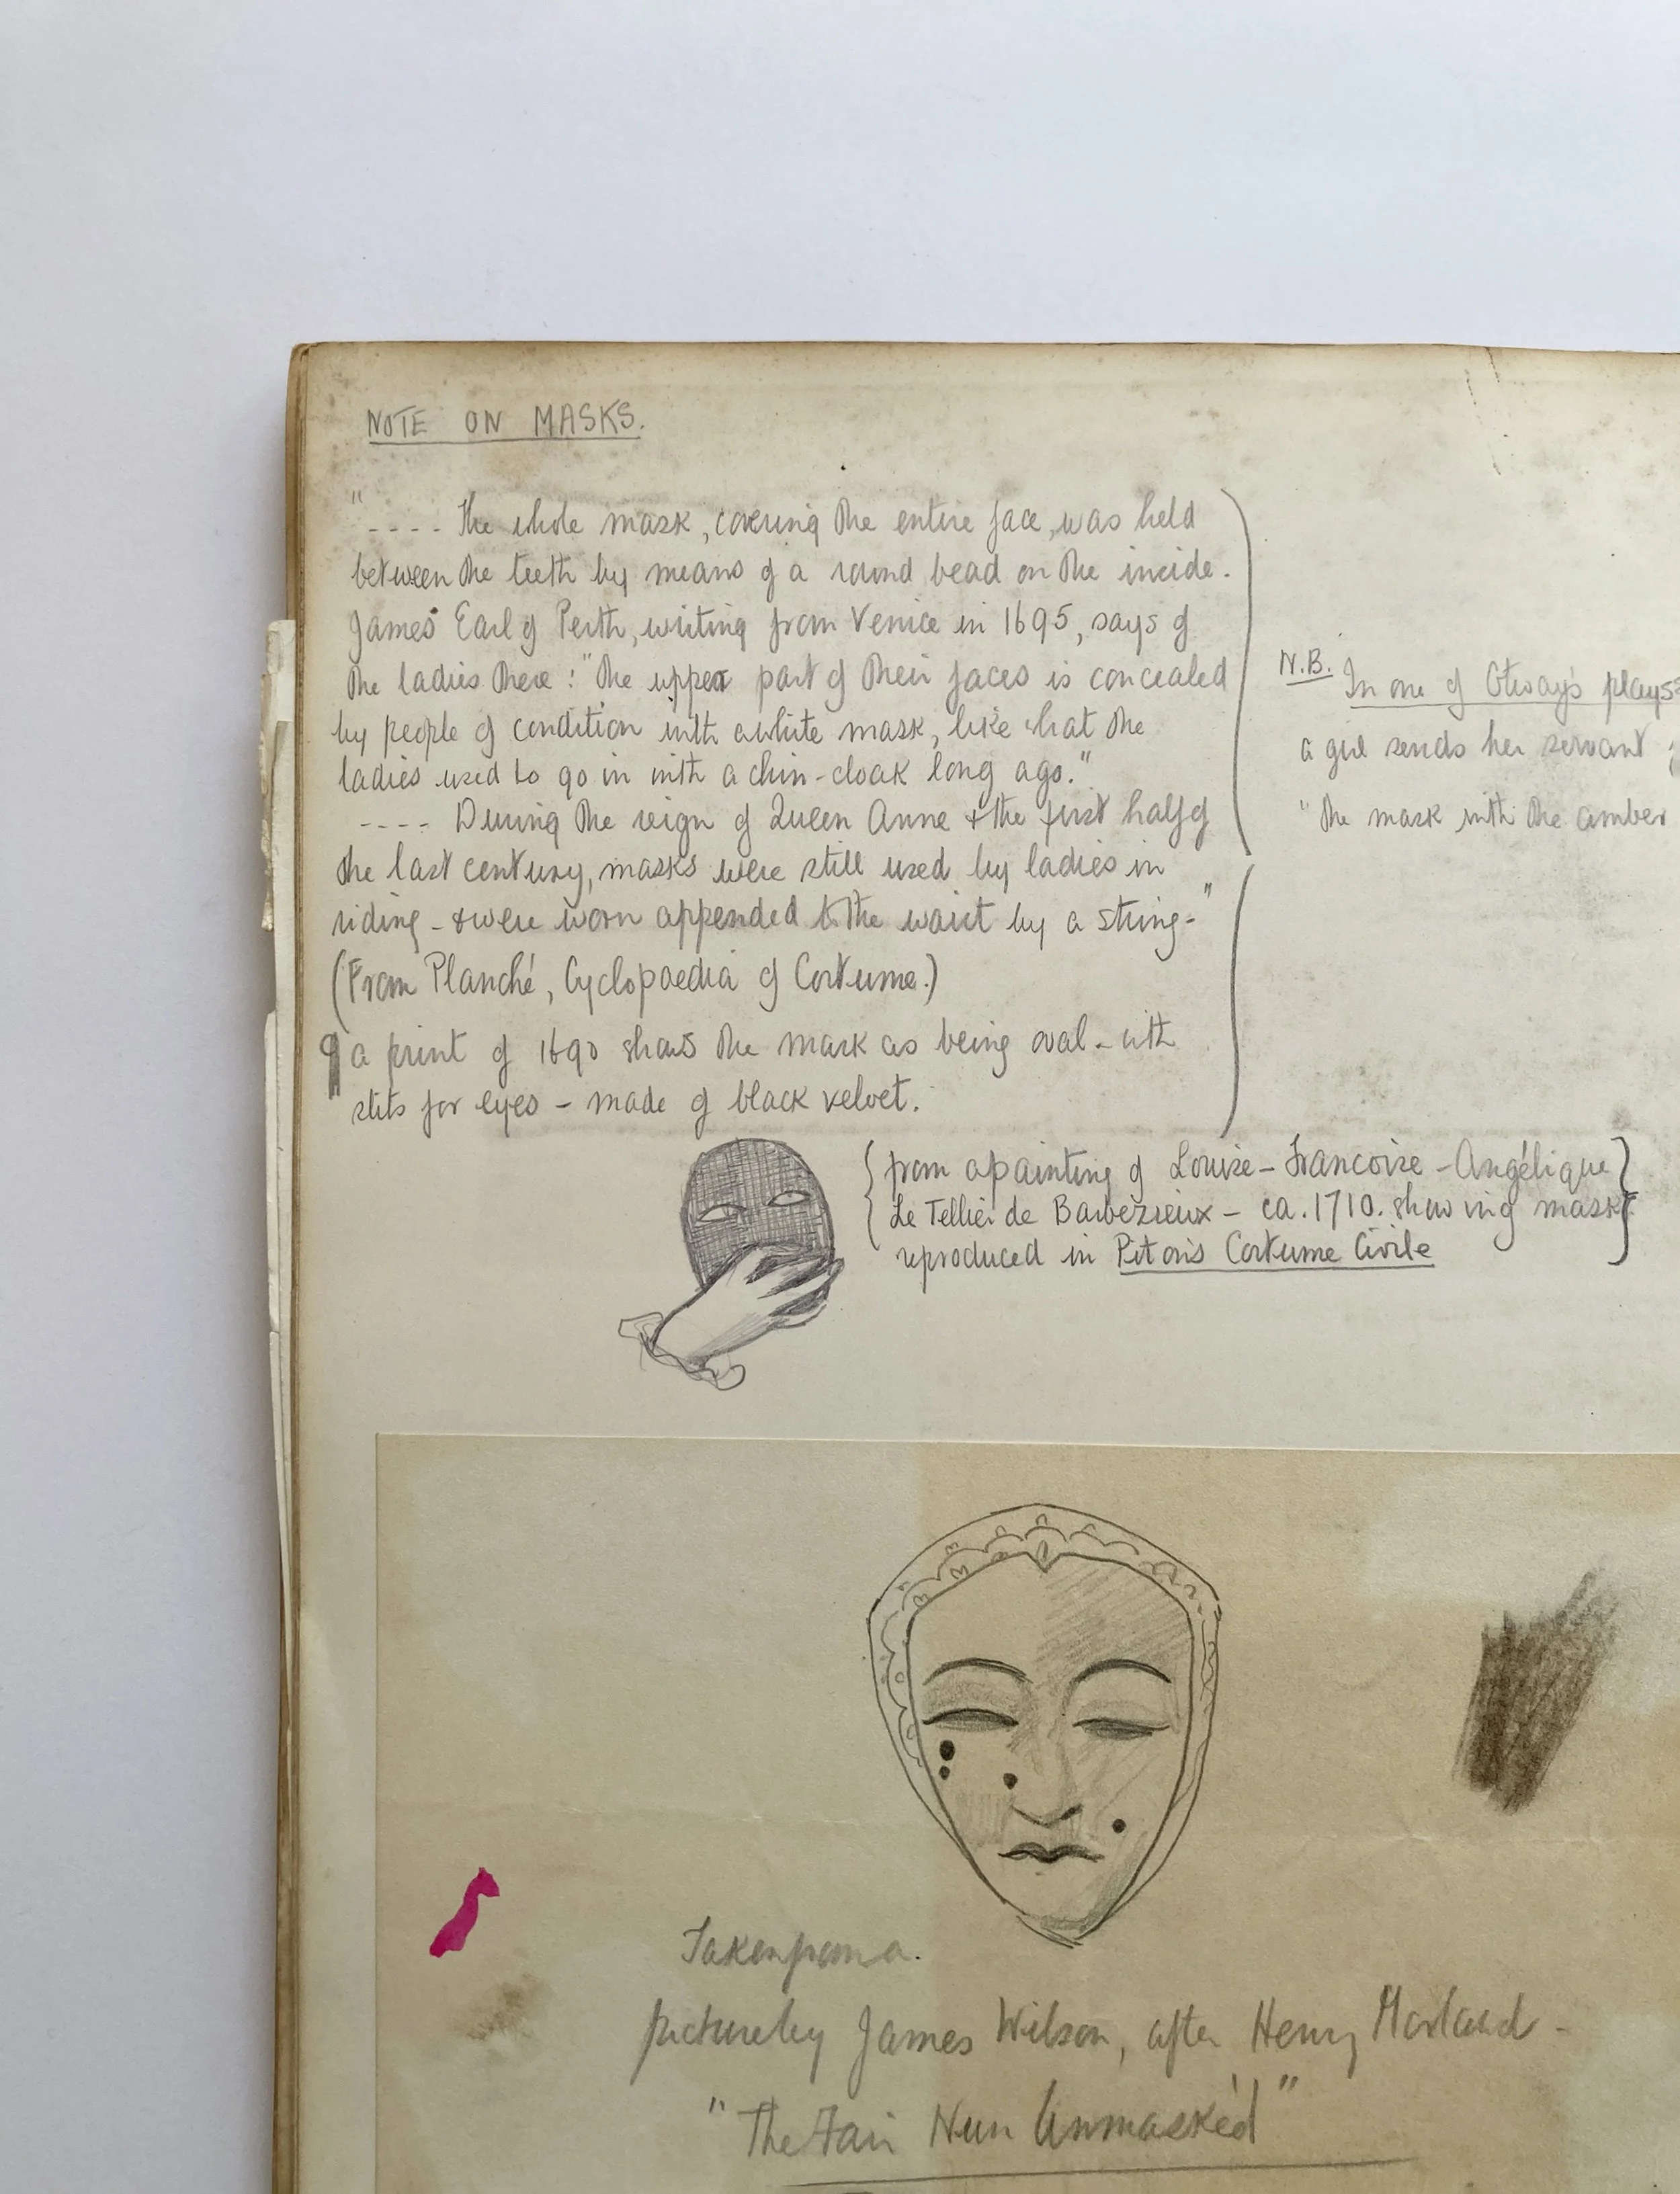 NOTE ON MASKS.
" ---- The whole mask, covering the entire face, was held
between the teeth by means of a round bead on the inside.
James Earl of Perth, writing from Venice in 1695, says of
the ladies there: "the upper part of their faces is concealed
by people of condition with a white mask, like what the
ladies used to go in with a chin-cloak long ago."
---- During the reign of Queen Anne & the first half of
the last century, masks were still used by ladies in
riding - & were worn appended to the waist by a string-"
(From Planché, Cyclopaedia of Costume.)
a print of 1690 shows the mask as being oval - with
slits for eyes - made of black velvet.
N.B. In one of Otway's plays
a girl sends her servant
"the mask with the amber
{from a painting of Louise-Francoise-Angélique}
{Le Tellier de Barbèzieux - ca. 1710. showing mask}
reproduced in Piton's Costume Civile
Taken from a.
picture by James Wilson, after Henry Morland -
"The Fair Nun Unmask'd"